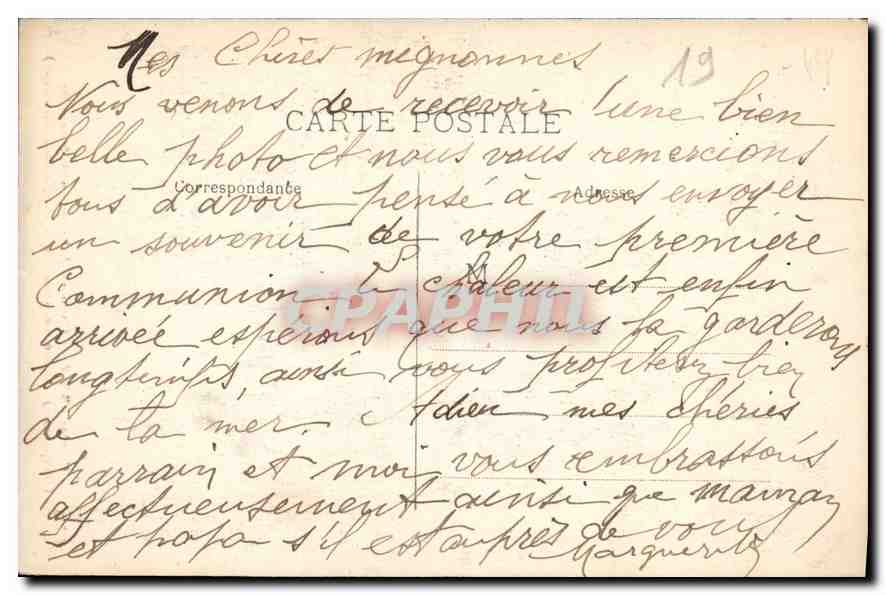 Mes Chères mignonnes
19
Nous venons de recevoir l'une bien
CARTE POSTALE
belle photo et nous vous remercions
Correspondance
Adresse
tous d'avoir pensé à nous envoyer
un souvenir de votre première
M
Communion, la chaleur est enfin
CPAPHIL
arrivée espérons que nous la garderons
longtemps, ainsi vous profiterez bien
de la mer. Adieu mes chéries
parrain et moi vous embrassons
affectueusement ainsi que maman
et papa s'il est auprès de vous
Marguerite